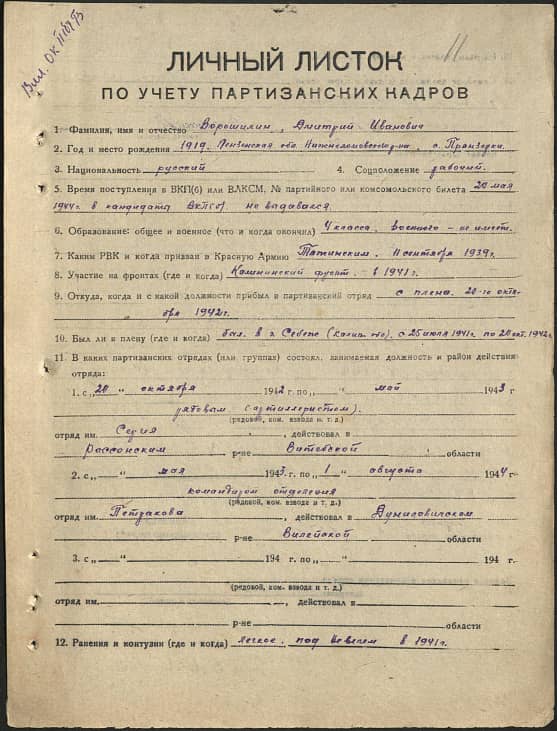 11
ЛИЧНЫЙ ЛИСТОК
ПО УЧЕТУ ПАРТИЗАНСКИХ КАДРОВ
1. Фамилия, имя и отчество Ворошилин, Дмитрий Иванович
2. Год и место рождения 1919. Пензенская обл. с.
3. Национальность русский 4. Соцположение рабочий.
5. Время поступления в ВКП(б) или ВЛКСМ, № партийного или комсомольского билета 20 мая
1944 г. в кандидаты ВКП(б). не выдавался.
6. Образование: общее и военное (что и когда окончил) 4 класса, военного – не имеет.
7. Каким РВК и когда призван в Красную Армию 11 сентября 1939 г.
8. Участие на фронтах (где и когда) Калининский фронт. в 1941 г.
9. Откуда, когда и с какой должности прибыл в партизанский отряд с плена. 20-го октя-
бря 1942 г.
10. Был ли в плену (где и когда) был. в г. Себеже с 25 июля 1941 г. по 20 окт. 1942 г.
11. В каких партизанских отрядах (или группах) состоял, занимаемая должность и район действия
отряда:
1. с „20“ октября 1942 г. по „ “ май 1943 г
рядовым (артиллеристом).
(рядовой, ком. взвода и т. д.)
отряд им. Седия, действовал в
Россонским р-не Витебской области
2. с „ “ мая 1943 г. по „1“ августа 1944 г.
командиром отделения
(рядовой, ком. взвода и т. д.)
отряд им. Петракова, действовал в
р-не Вилейской области
3. с „ “ 194 г. по „ “ 194 г.
(рядовой, ком. взвода и т. д.)
отряд им. , действовал в
р-не области
12. Ранения и контузии (где и когда) легкое. под Невелем в 1941 г.